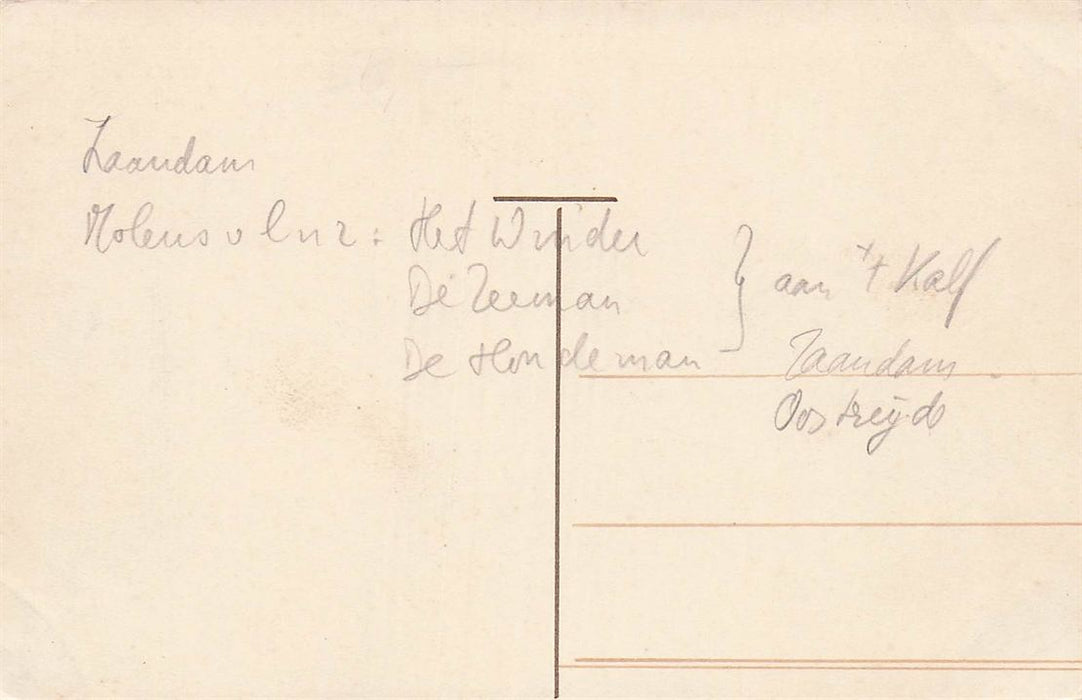 Zaandam
Molens v l n r : Het Wonder
De Zeeman
De Hondeman
} aan 't Kalf
Zaandam
Oostzijde